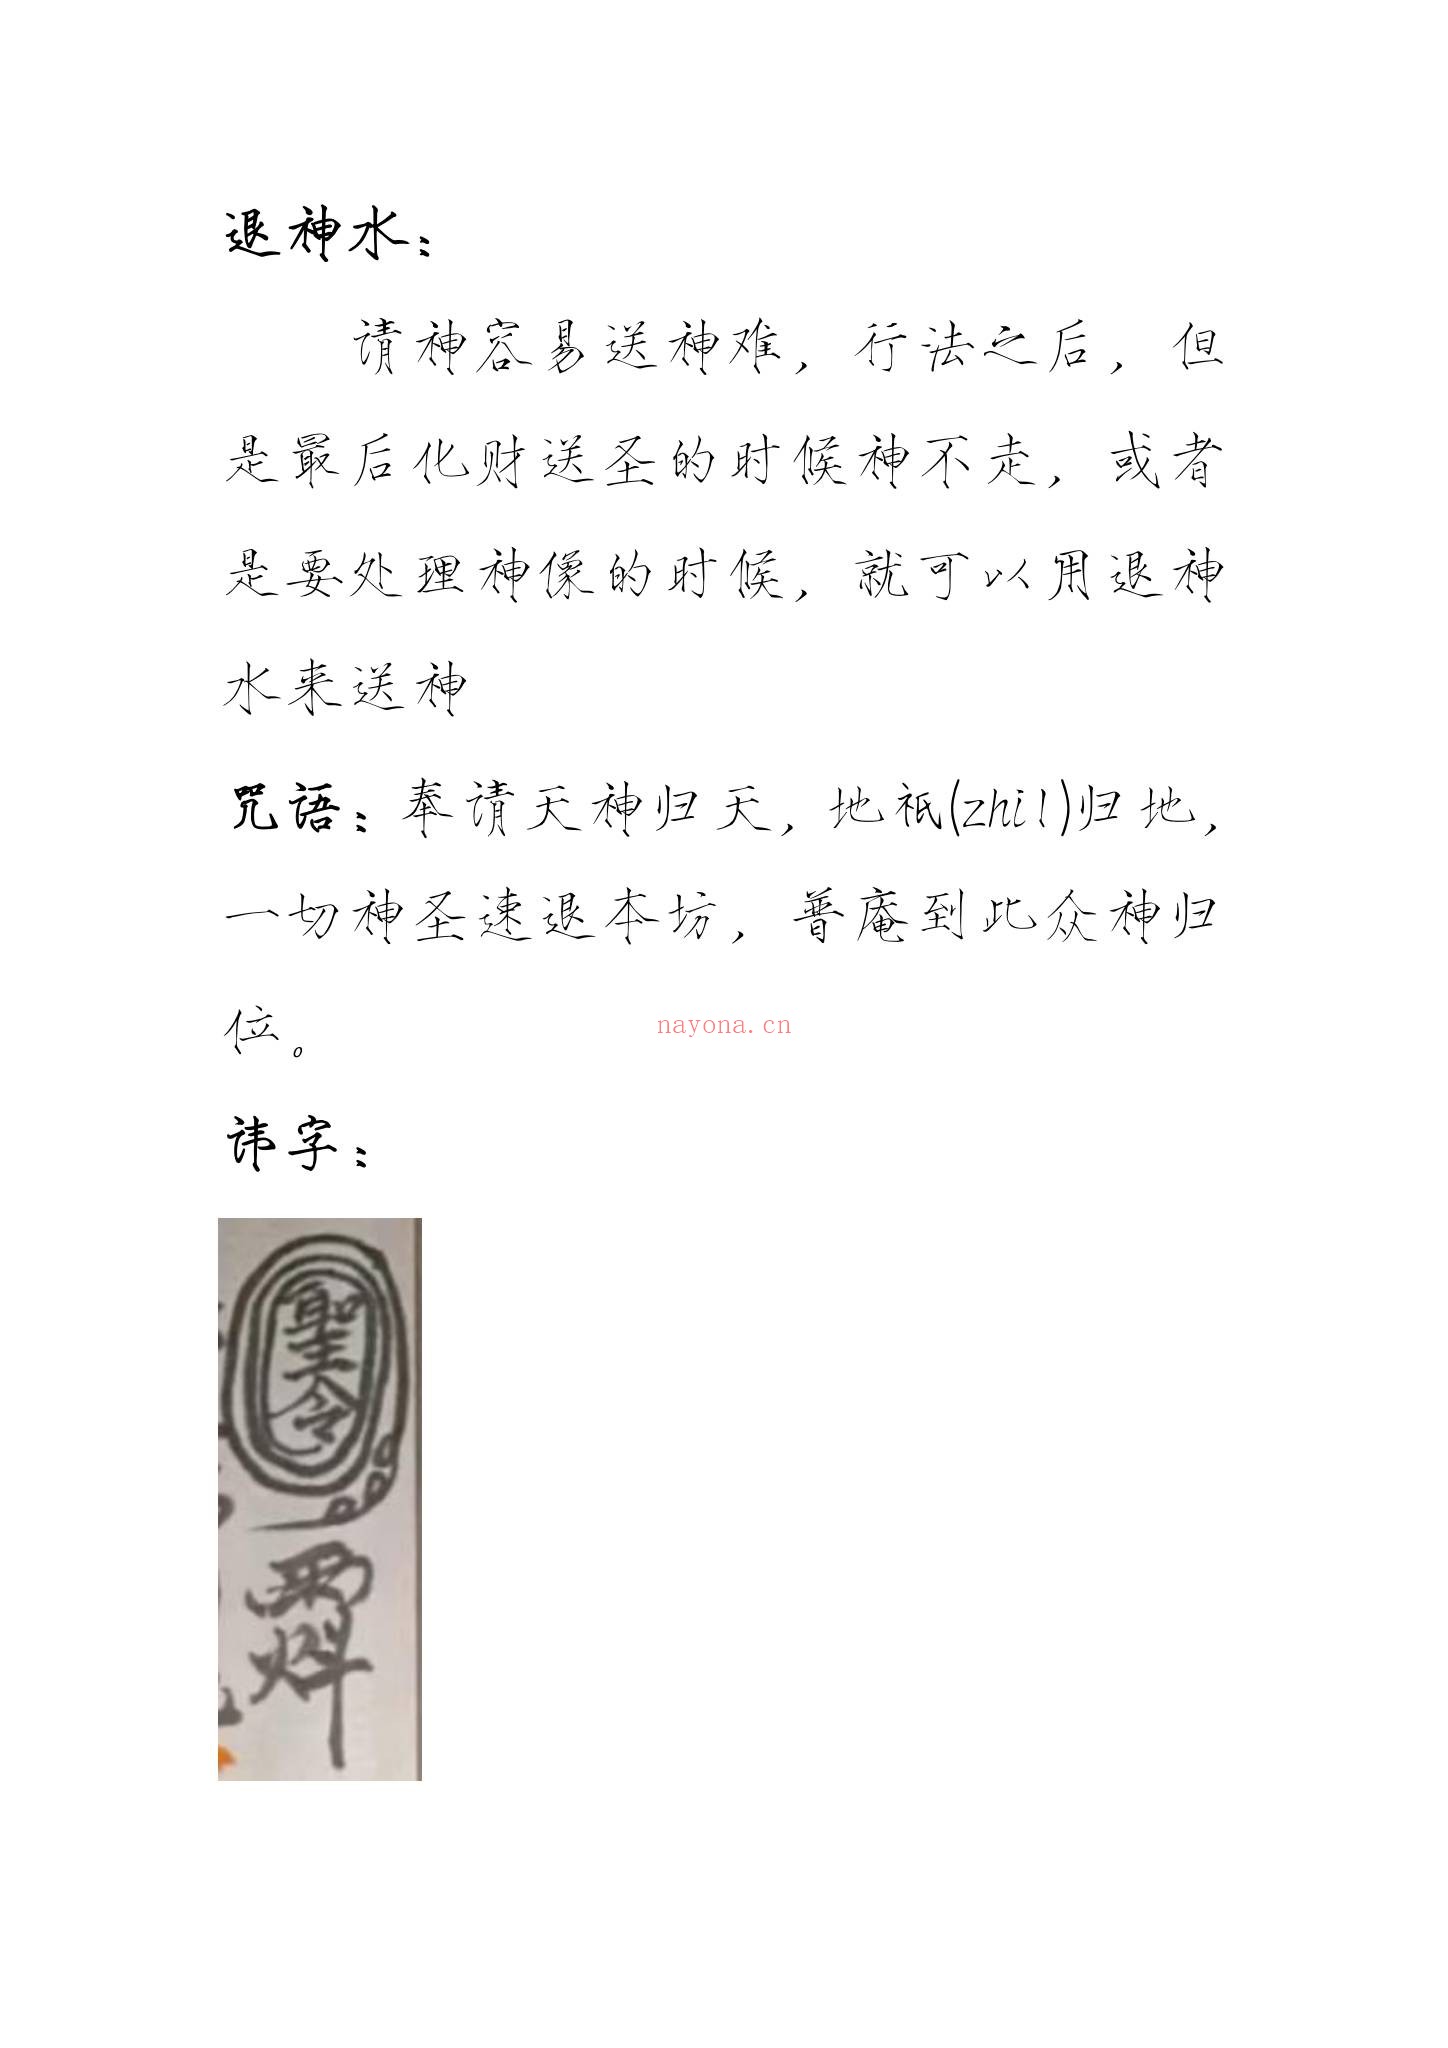 退神水：
请神容易送神难，行法之后，但
是最后化财送圣的时候神不走，或者
是要处理神像的时候，就可以用退神
水来送神
咒语：奉请天神归天，地祇(zhi1)归地，
一切神圣速退本坊，普庵到此众神归
位。
nayona.cn
讳字：
聖
令